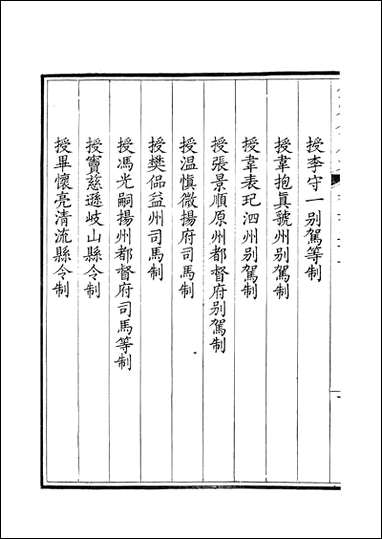 授李守一别駕等制
授韋抱眞虢州别駕制
授韋表玘泗州别駕制
授張景順原州都督府别駕制
授温愼微揚府司馬制
授樊偘益州司馬制
授馮光嗣揚州都督府司馬等制
授竇慈遜岐山縣令制
授畢懷亮清流縣令制